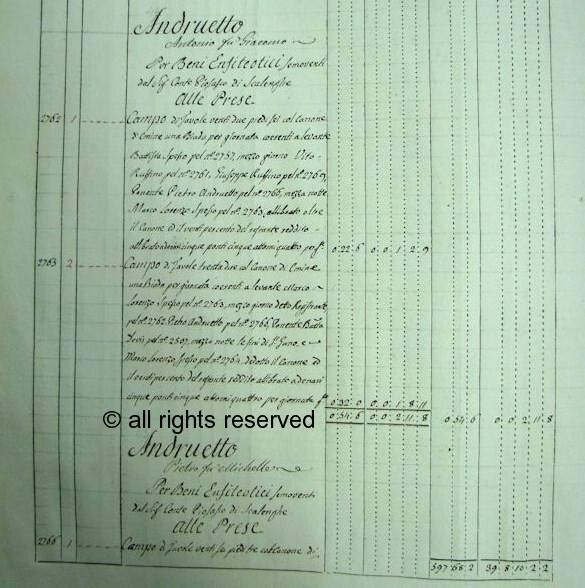 Andruetto
Antonio fu Giacomo
Per Beni Enfiteotici semoventi
dal Sig Conte Piosasco di Scalenghe
Alle Prese
2762 1 Campo di Tavole venti due piedi sei col Canone
d'Emine una Biada per giornata, coerenti a levante
Battista Spesso pel nº 2757, mezzo giorno Vito
Ruffino pel nº 2761, Giuseppe Ruffino pel nº 2769,
Ponente Pietro Andruetto pel nº 2766, mezza notte
Marco Lorenzo Spesso pel nº 2763, allibrato oltre
il Canone ed il venti per cento del restante reddito
cinque ponti cinque atomi quattro per gª 0 22 6 0 0 1 2 9
2763 2 Campo di Tavole trenta due al Canone di Emine
una Biada per giornata, coerenti a levante Marco
Lorenzo Spesso pel nº 2763, mezzo giorno detto Registrante
pel nº 2762 Pietro Andruetto pel nº 2766, Ponente Batta
pel nº 2507, mezza notte le fini di e
Marco Lorenzo Spesso pel nº 2764, dedotto il Canone ed
il venti per cento del restante reddito allibrato a denari
cinque ponti cinque atomi quattro per giornata gª 0 32 0 0 0 1 8 11
0 54 6 0 0 2 11 8 0 54 6 0 0 2 11 8
© all rights reserved
Andruetto
Pietro fu Michelle
Per Beni Enfiteotici semoventi
dal Sig Conte Piosasco di Scalenghe
Alle Prese
2766 1 Campo di Tavole venti su piedi tre col Canone di
597 68 2 39 8 10 2 2